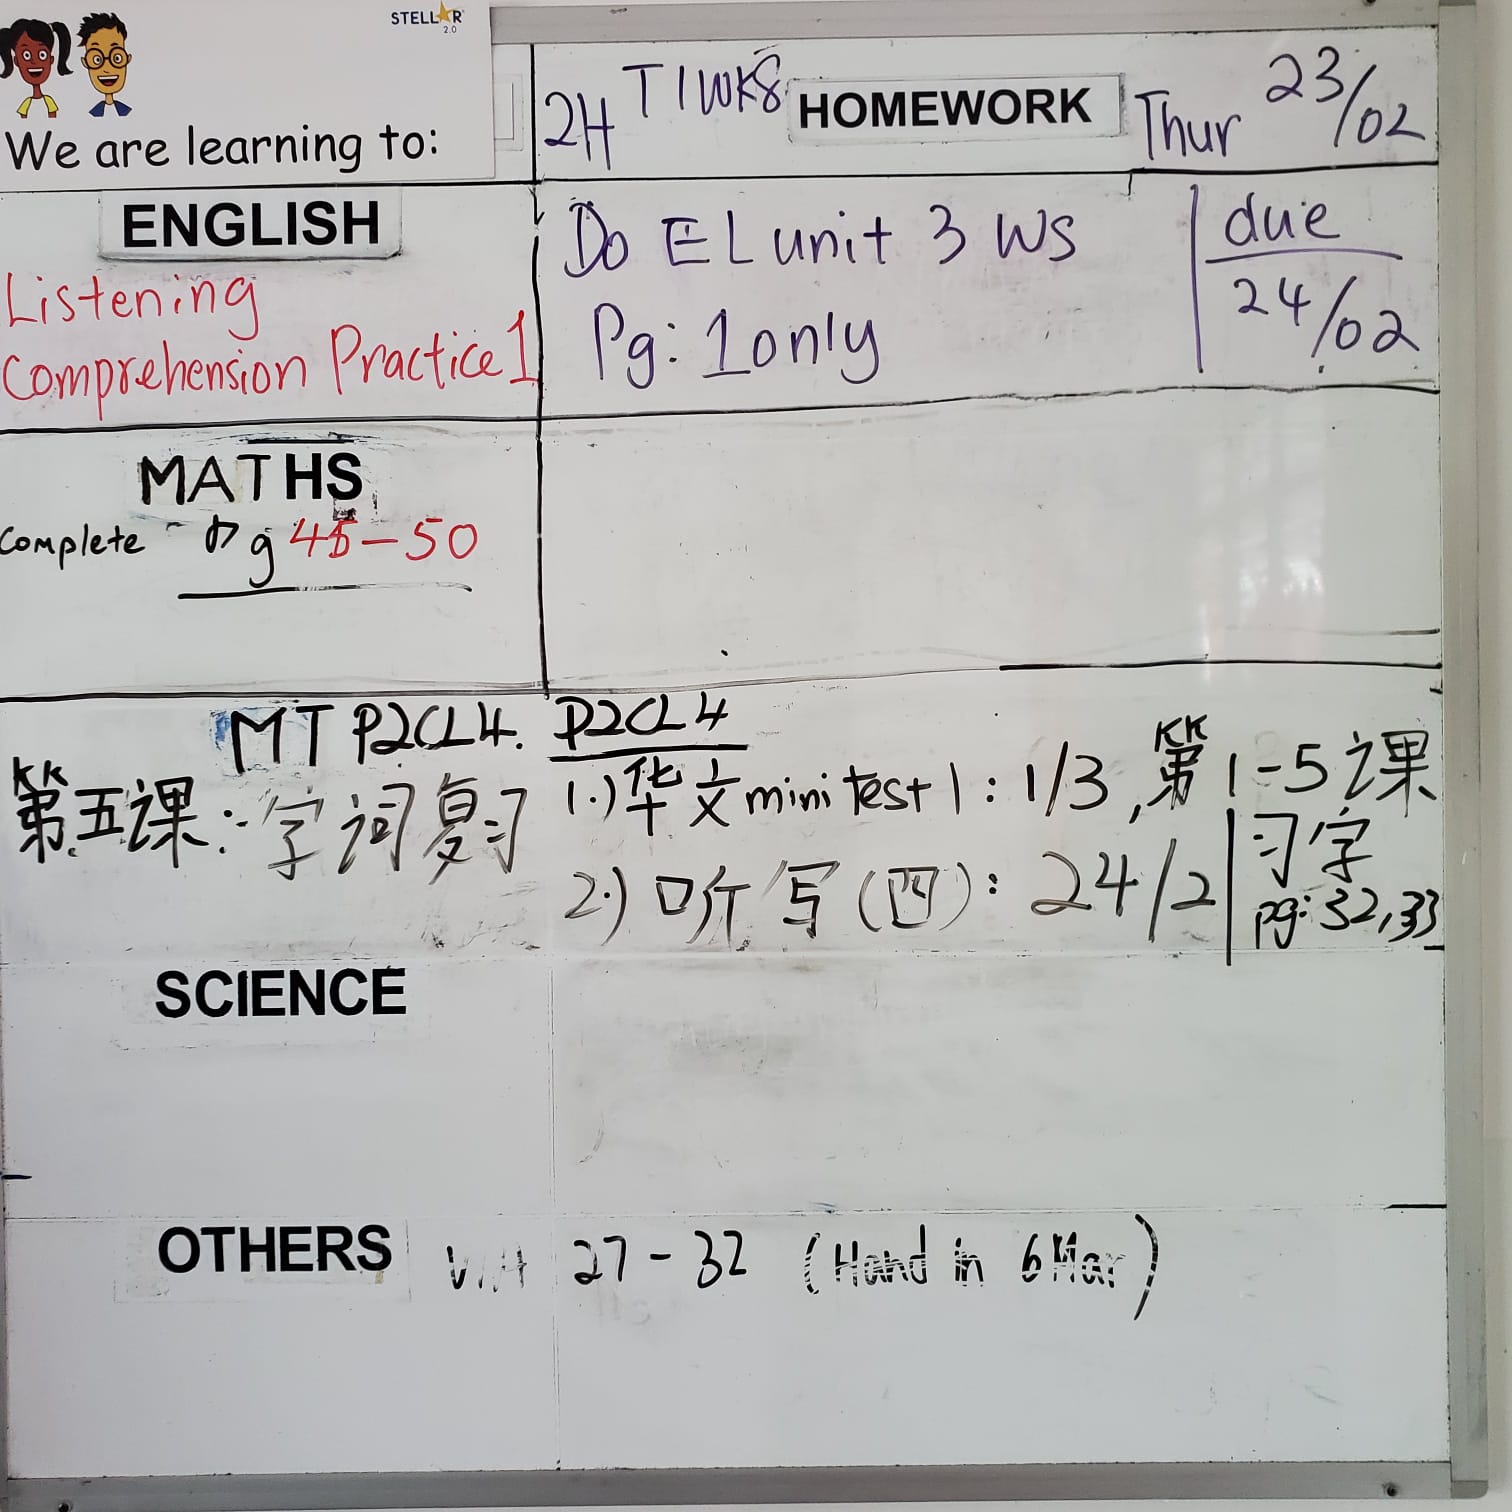 STELLAR 2.0
We are learning to:
2H T1WK8 HOMEWORK Thur 23/02
ENGLISH
Listening
Comprehension Practice 1
Do EL unit 3 WS
Pg: 1 only
due
24/02
MATHS
Complete Pg 45-50
MT P2CL4.
第五课:字词复习
P2CL4
1.) 华文 mini test 1: 1/3, 第1-5课
2.) 听写(四): 24/2
习字
pg: 32,33
SCIENCE
OTHERS
27-32 (Hand in 6 Mar)